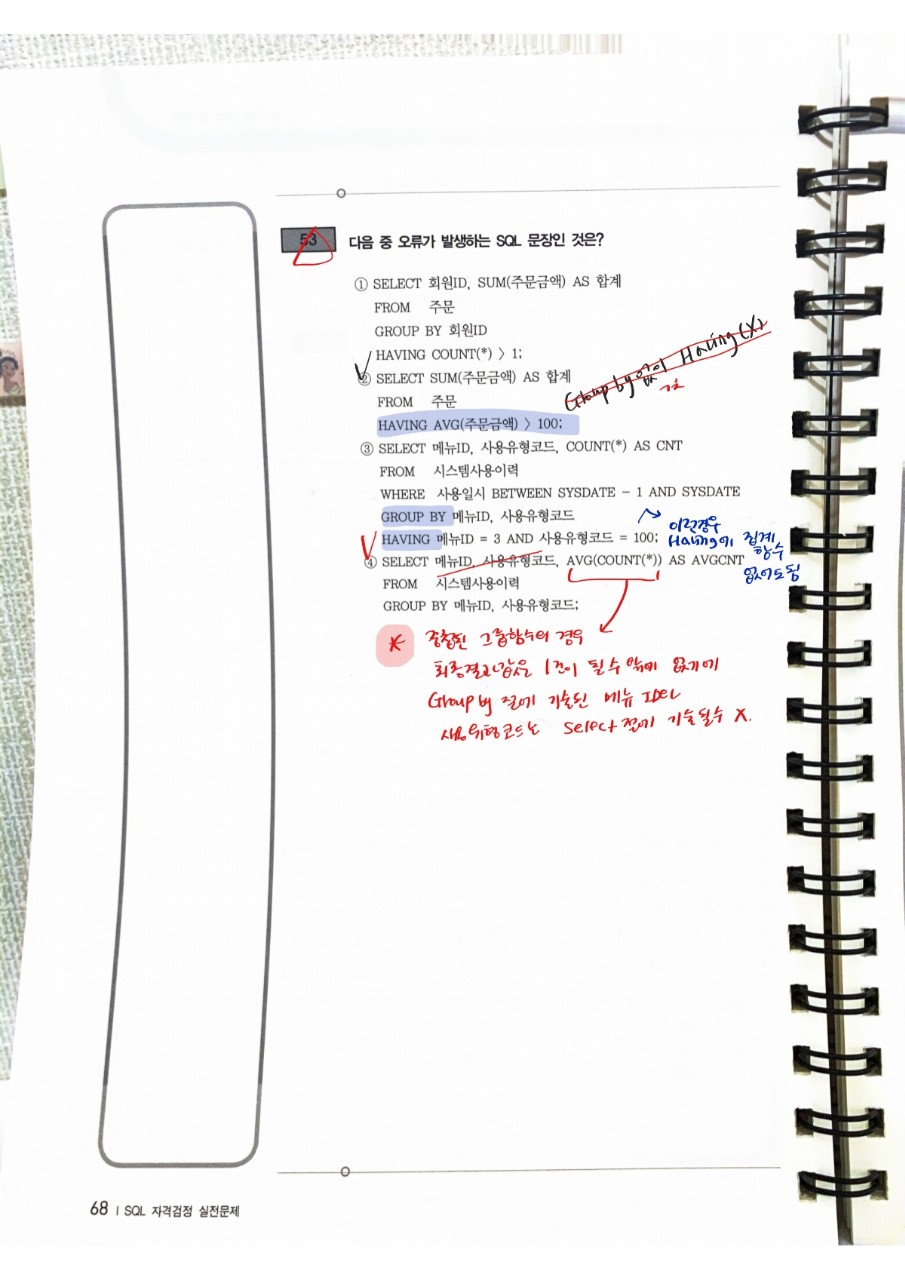 53 다음 중 오류가 발생하는 SQL 문장인 것은?
① SELECT 회원ID, SUM(주문금액) AS 합계
FROM 주문
GROUP BY 회원ID
HAVING COUNT(*) > 1;
② SELECT SUM(주문금액) AS 합계
FROM 주문
HAVING AVG(주문금액) > 100;
Group by 없이 Having (X)
③ SELECT 메뉴ID, 사용유형코드, COUNT(*) AS CNT
FROM 시스템사용이력
WHERE 사용일시 BETWEEN SYSDATE - 1 AND SYSDATE
GROUP BY 메뉴ID, 사용유형코드
HAVING 메뉴ID = 3 AND 사용유형코드 = 100;
이런경우
Having에 집계
함수
없어도됨
④ SELECT 메뉴ID, 사용유형코드, AVG(COUNT(*)) AS AVGCNT
FROM 시스템사용이력
GROUP BY 메뉴ID, 사용유형코드;
* 중첩된 그룹함수의 경우
최종결과값은 1건이 될 수 밖에 없기에
Group by 절에 기술된 메뉴 ID와
사용유형코드는 Select 절에 기술될수 X.
68 | SQL 자격검정 실전문제